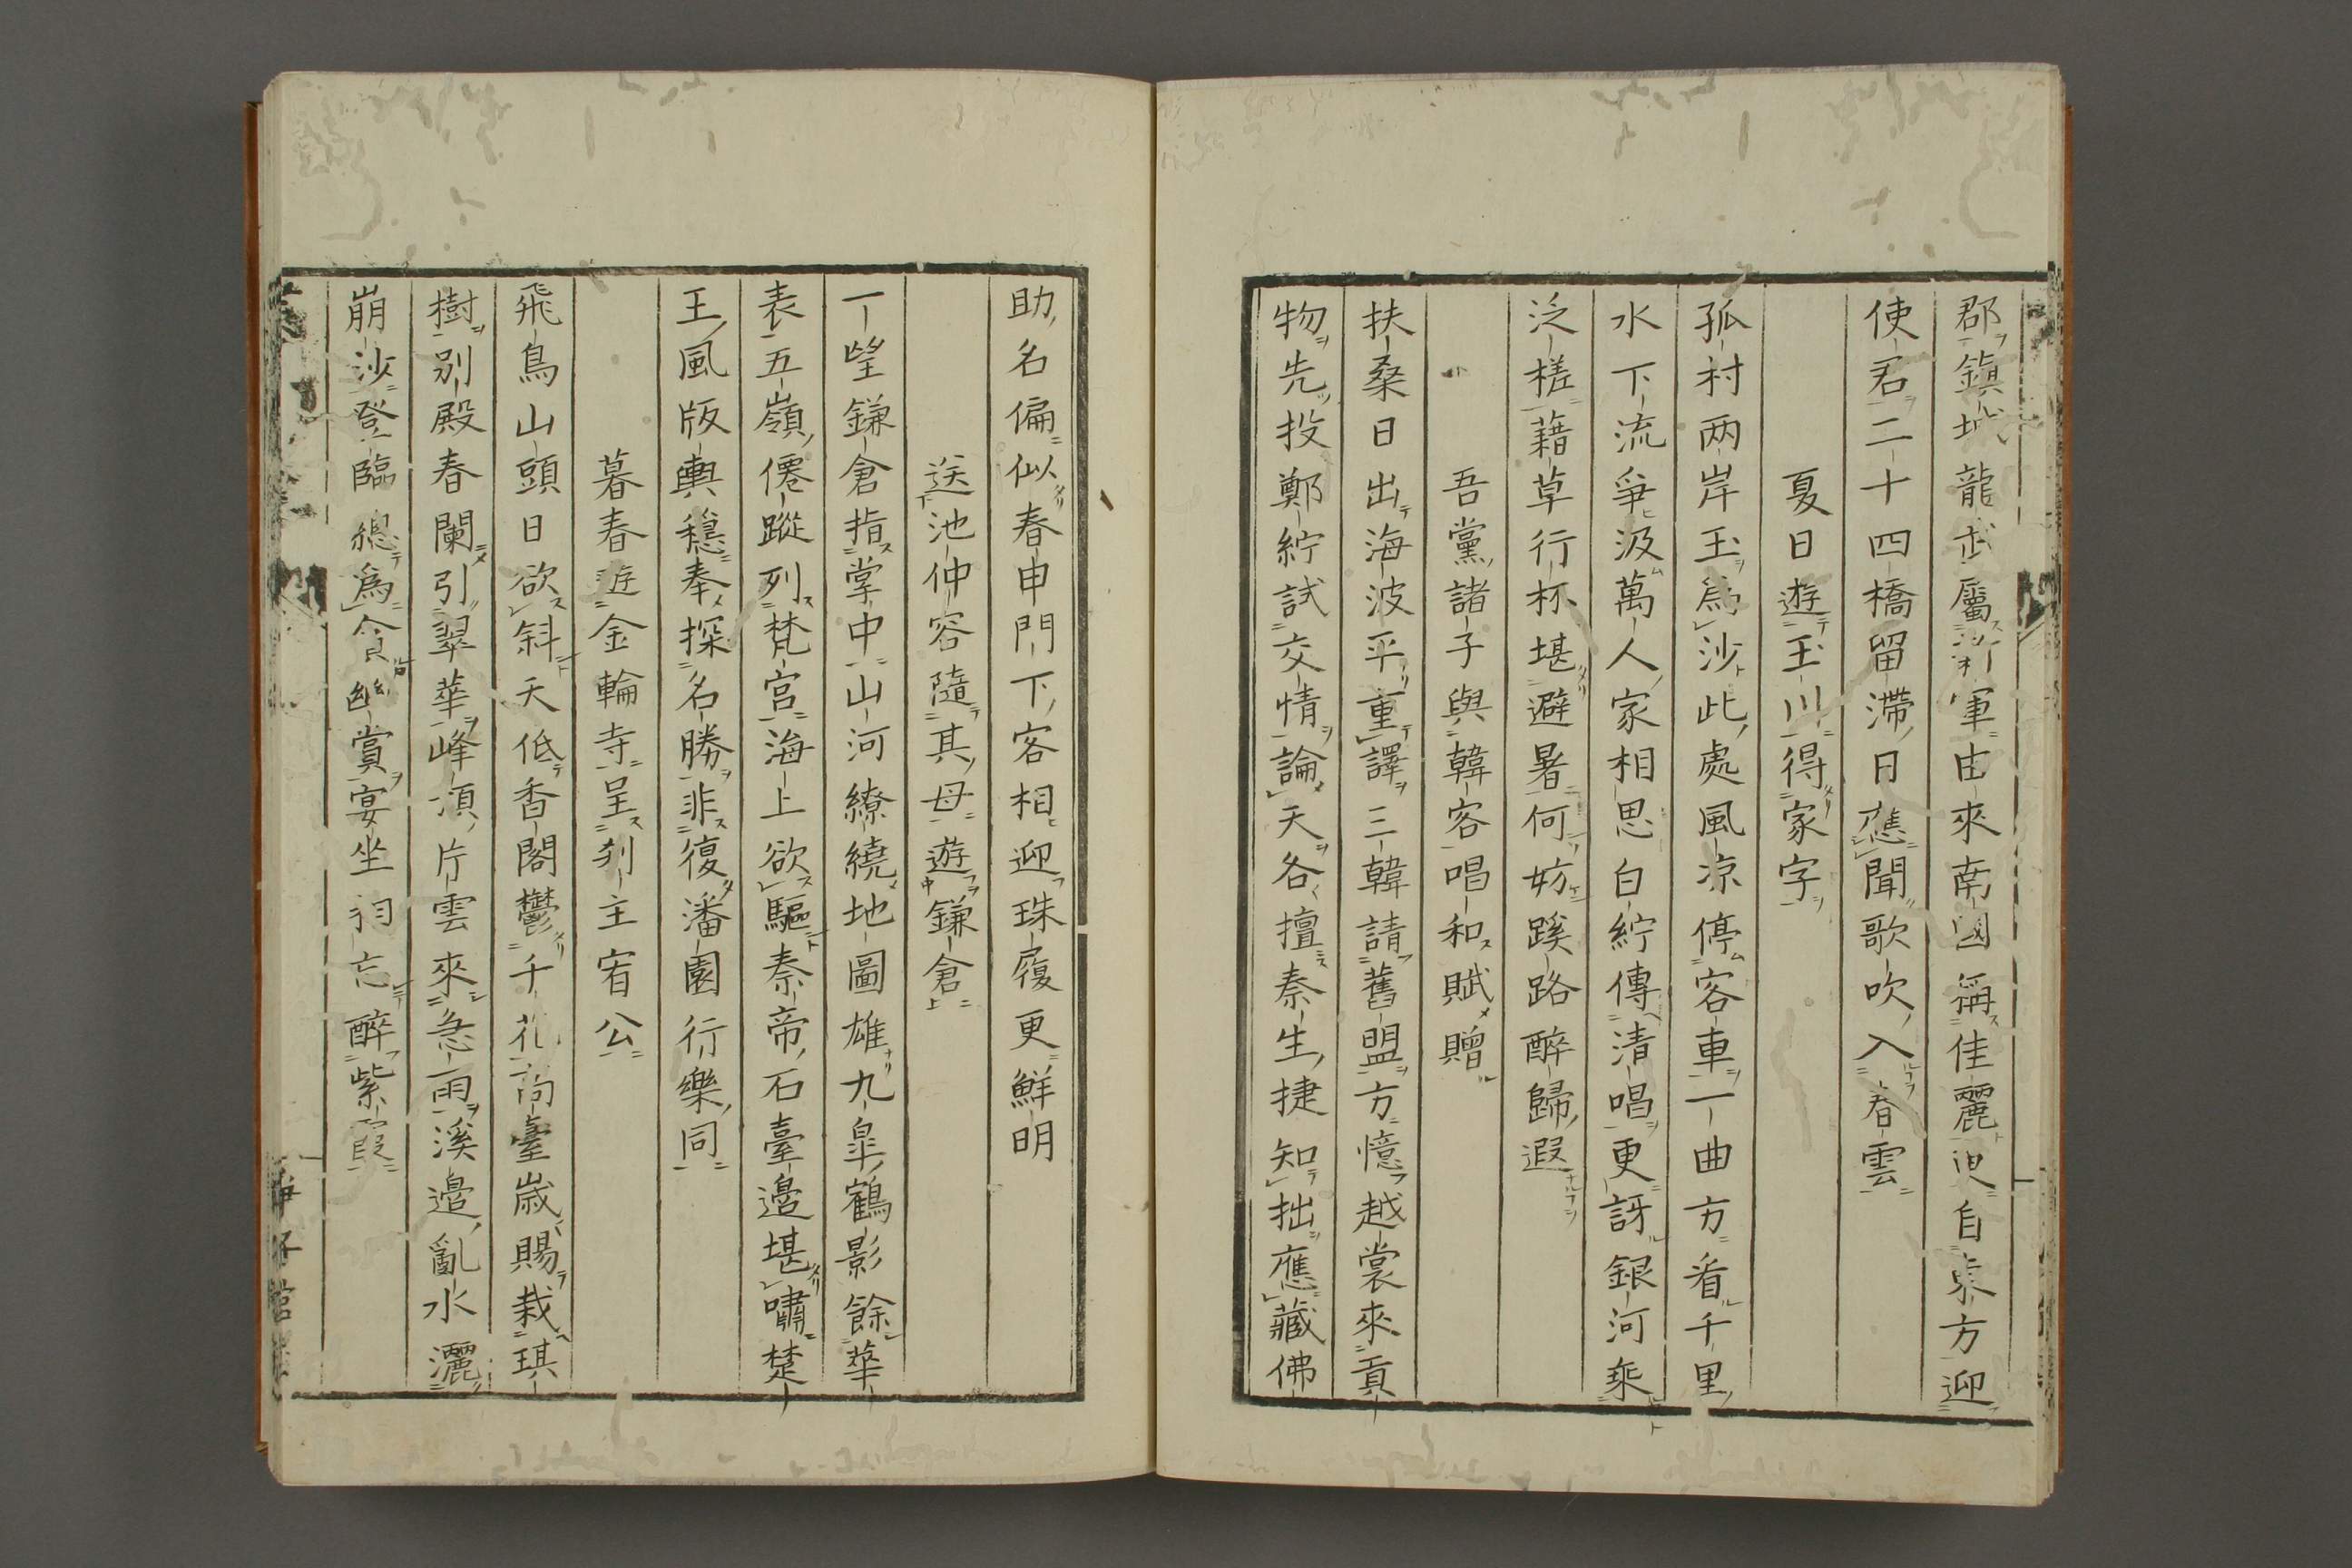 郡鎮城龍武屬新軍由來南國稱佳麗更自東方迎
使君二十四橋留滯日應聞歌吹入春雲
夏日遊玉川得家字
孤村两岸玉爲沙此處風凉停客車一曲方看千里
水下流爭汲萬人家相思白紵傳清唱更訝銀河乘
泛槎藉草行杯堪避暑何妨蹊路醉歸遐
吾黨諸子與韓客唱和賦贈
扶桑日出海波平重譯三韓請舊盟方憶越裳來貢
物先投鄭紵試交情論天各擅秦生捷知拙應藏佛
助名偏似春申門下客相迎珠履更鮮明
送池仲容隨其母遊鎌倉
一望鎌倉指掌中山河繚繞地圖雄九皐鶴影餘華
表五嶺僊蹤列梵宮海上欲驅秦帝石臺邉堪嘯楚
王風版輿穩奉探名勝非復潘園行樂同
暮春遊金輪寺呈刹主宥公
飛鳥山頭日欲斜天低香閣鬱千花臺歳賜栽琪
樹別殿春闌引翠華峰頂片雲來急雨溪邉亂水灑
崩沙登臨總爲貪幽賞宴坐忘醉紫霞